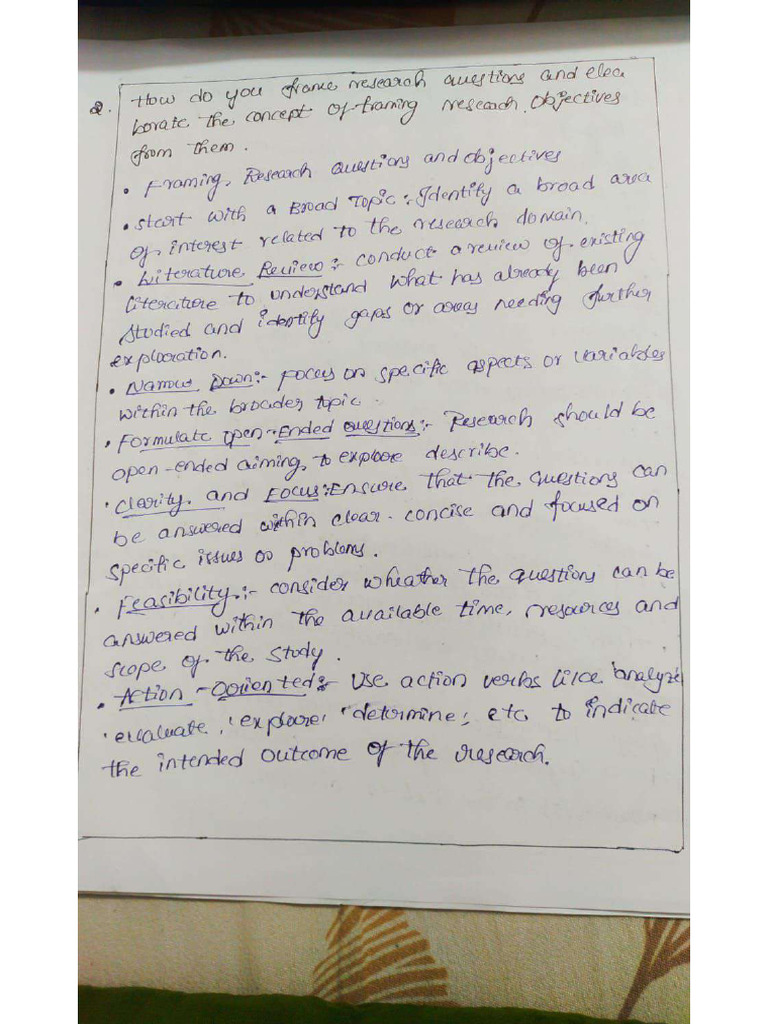 2. How do you frame research questions and elea
borate the concept of framing research objectives
from them.
• Framing Research Questions and objectives
• Start with a Broad Topic: Identify a broad area
of interest related to the research domain.
• Literature Review:- conduct a review of existing
literature to understand what has already been
studied and identify gaps or areas needing further
exploration.
• Narrow Down:- Focus on specific aspects or variables
within the broader topic.
• Formulate Open-Ended Questions:- Research should be
open-ended aiming to explore describe.
• Clarity and Focus: Ensure that the questions can
be answered within clear concise and focused on
specific issues or problems.
• Feasibility:- consider wheather the questions can be
answered within the available time, resources and
scope of the study.
• Action-Oriented:- Use action verbs like 'analyze
'evaluate', 'explore' 'determine', etc to indicate
the intended outcome of the research.